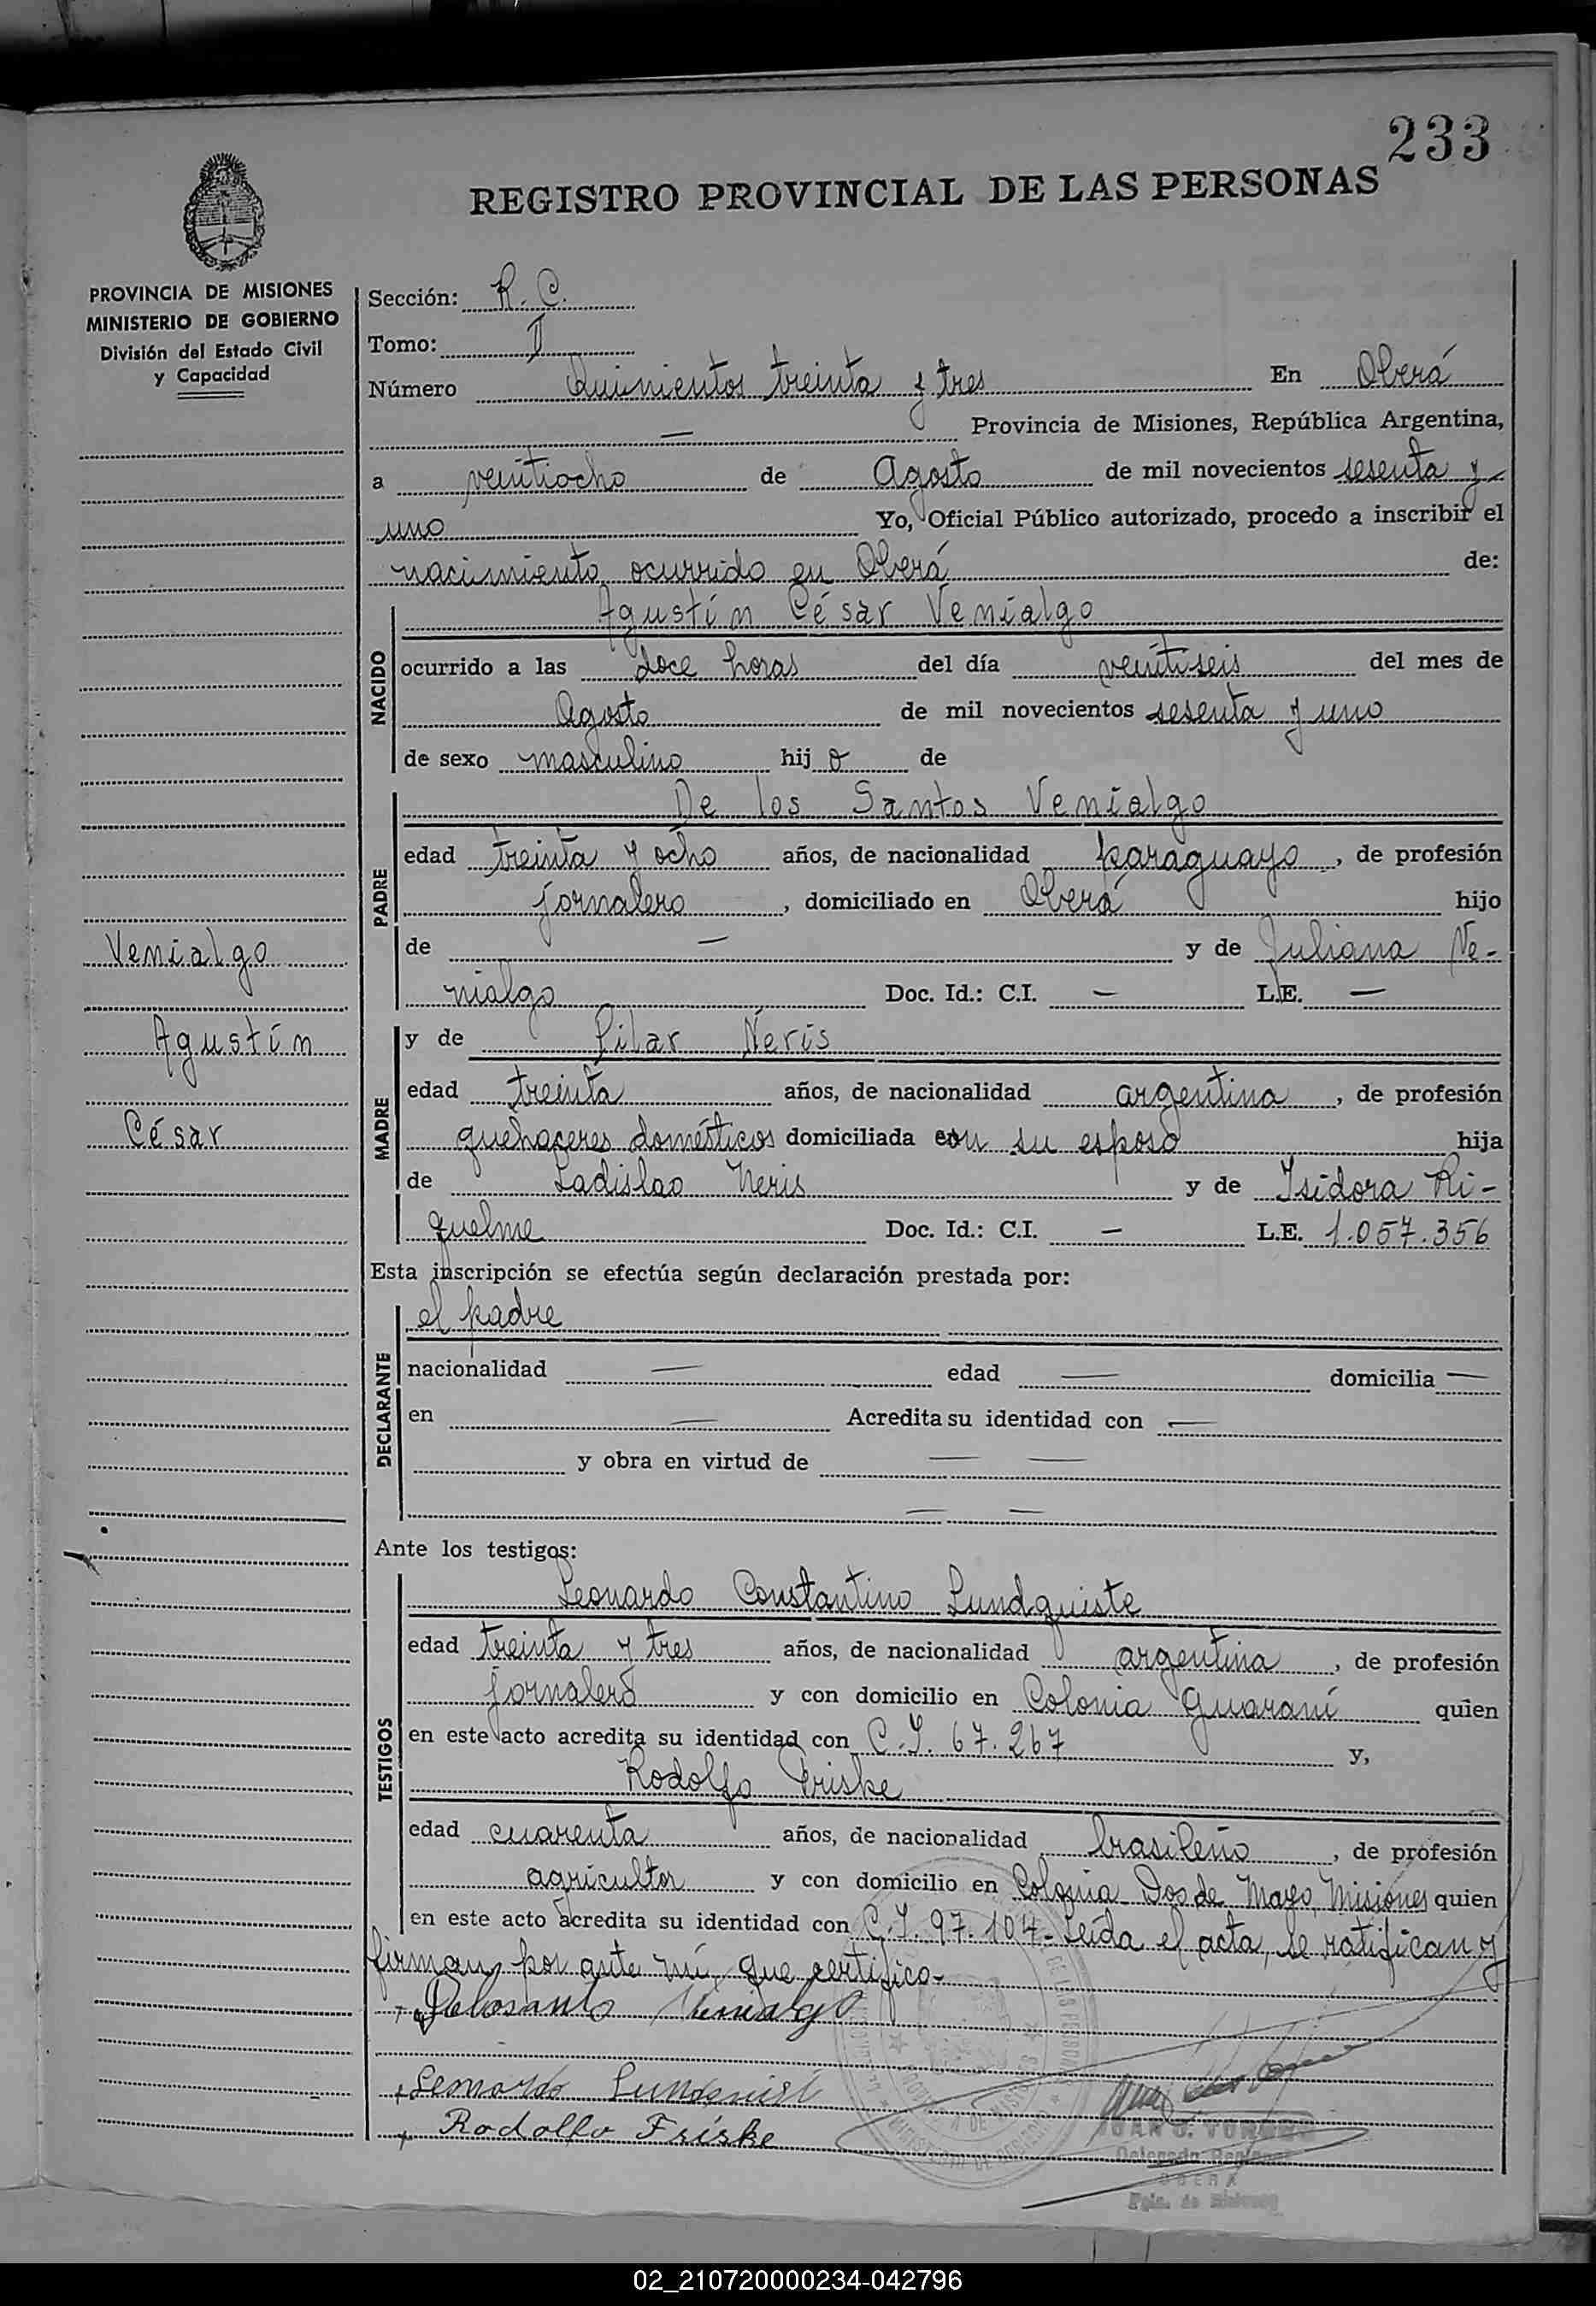 233
REGISTRO PROVINCIAL DE LAS PERSONAS
PROVINCIA DE MISIONES
MINISTERIO DE GOBIERNO
División del Estado Civil
y Capacidad
Sección: R. C.
Tomo: II
Número Quinientos treinta y tres En Oberá
— Provincia de Misiones, República Argentina,
a veintiocho de Agosto de mil novecientos sesenta y
uno Yo, Oficial Público autorizado, procedo a inscribir el
nacimiento ocurrido en Oberá de:
NACIDO
Agustín César Venialgo
ocurrido a las doce horas del día veintiseis del mes de
Agosto de mil novecientos sesenta y uno
de sexo masculino hij o de
PADRE
De los Santos Venialgo
edad treinta y ocho años, de nacionalidad paraguayo, de profesión
jornalero, domiciliado en Oberá hijo
de — y de Juliana Ve-
nialgo Doc. Id.: C.I. — L.E. —
Venialgo
Agustín
César
MADRE
y de Pilar Neris
edad treinta años, de nacionalidad argentina, de profesión
quehaceres domésticos domiciliada con su esposo hija
de Ladislao Neris y de Isidora Ri-
quelme Doc. Id.: C.I. — L.E. 1.057.356
Esta inscripción se efectúa según declaración prestada por:
DECLARANTE
el padre
nacionalidad — edad — domicilia —
en — Acredita su identidad con —
y obra en virtud de — —
— —
Ante los testigos:
TESTIGOS
Leonardo Constantino Lundquiste
edad treinta y tres años, de nacionalidad argentina, de profesión
jornalero y con domicilio en Colonia Guaraní quien
en este acto acredita su identidad con C.I. 67.267 y,
Rodolfo Friske
edad cuarenta años, de nacionalidad brasileño, de profesión
agricultor y con domicilio en Colonia Dos de Mayo, Misiones quien
en este acto acredita su identidad con C.I. 97.104 - Leída el acta, se ratifican y
firman por ante mí, que certifico-
+ Delosanto Venialgo
+ Leonardo Lundquist
+ Rodolfo Friske
Delegado Regional
OBERA
Pcia. de Misiones
02_210720000234-042796